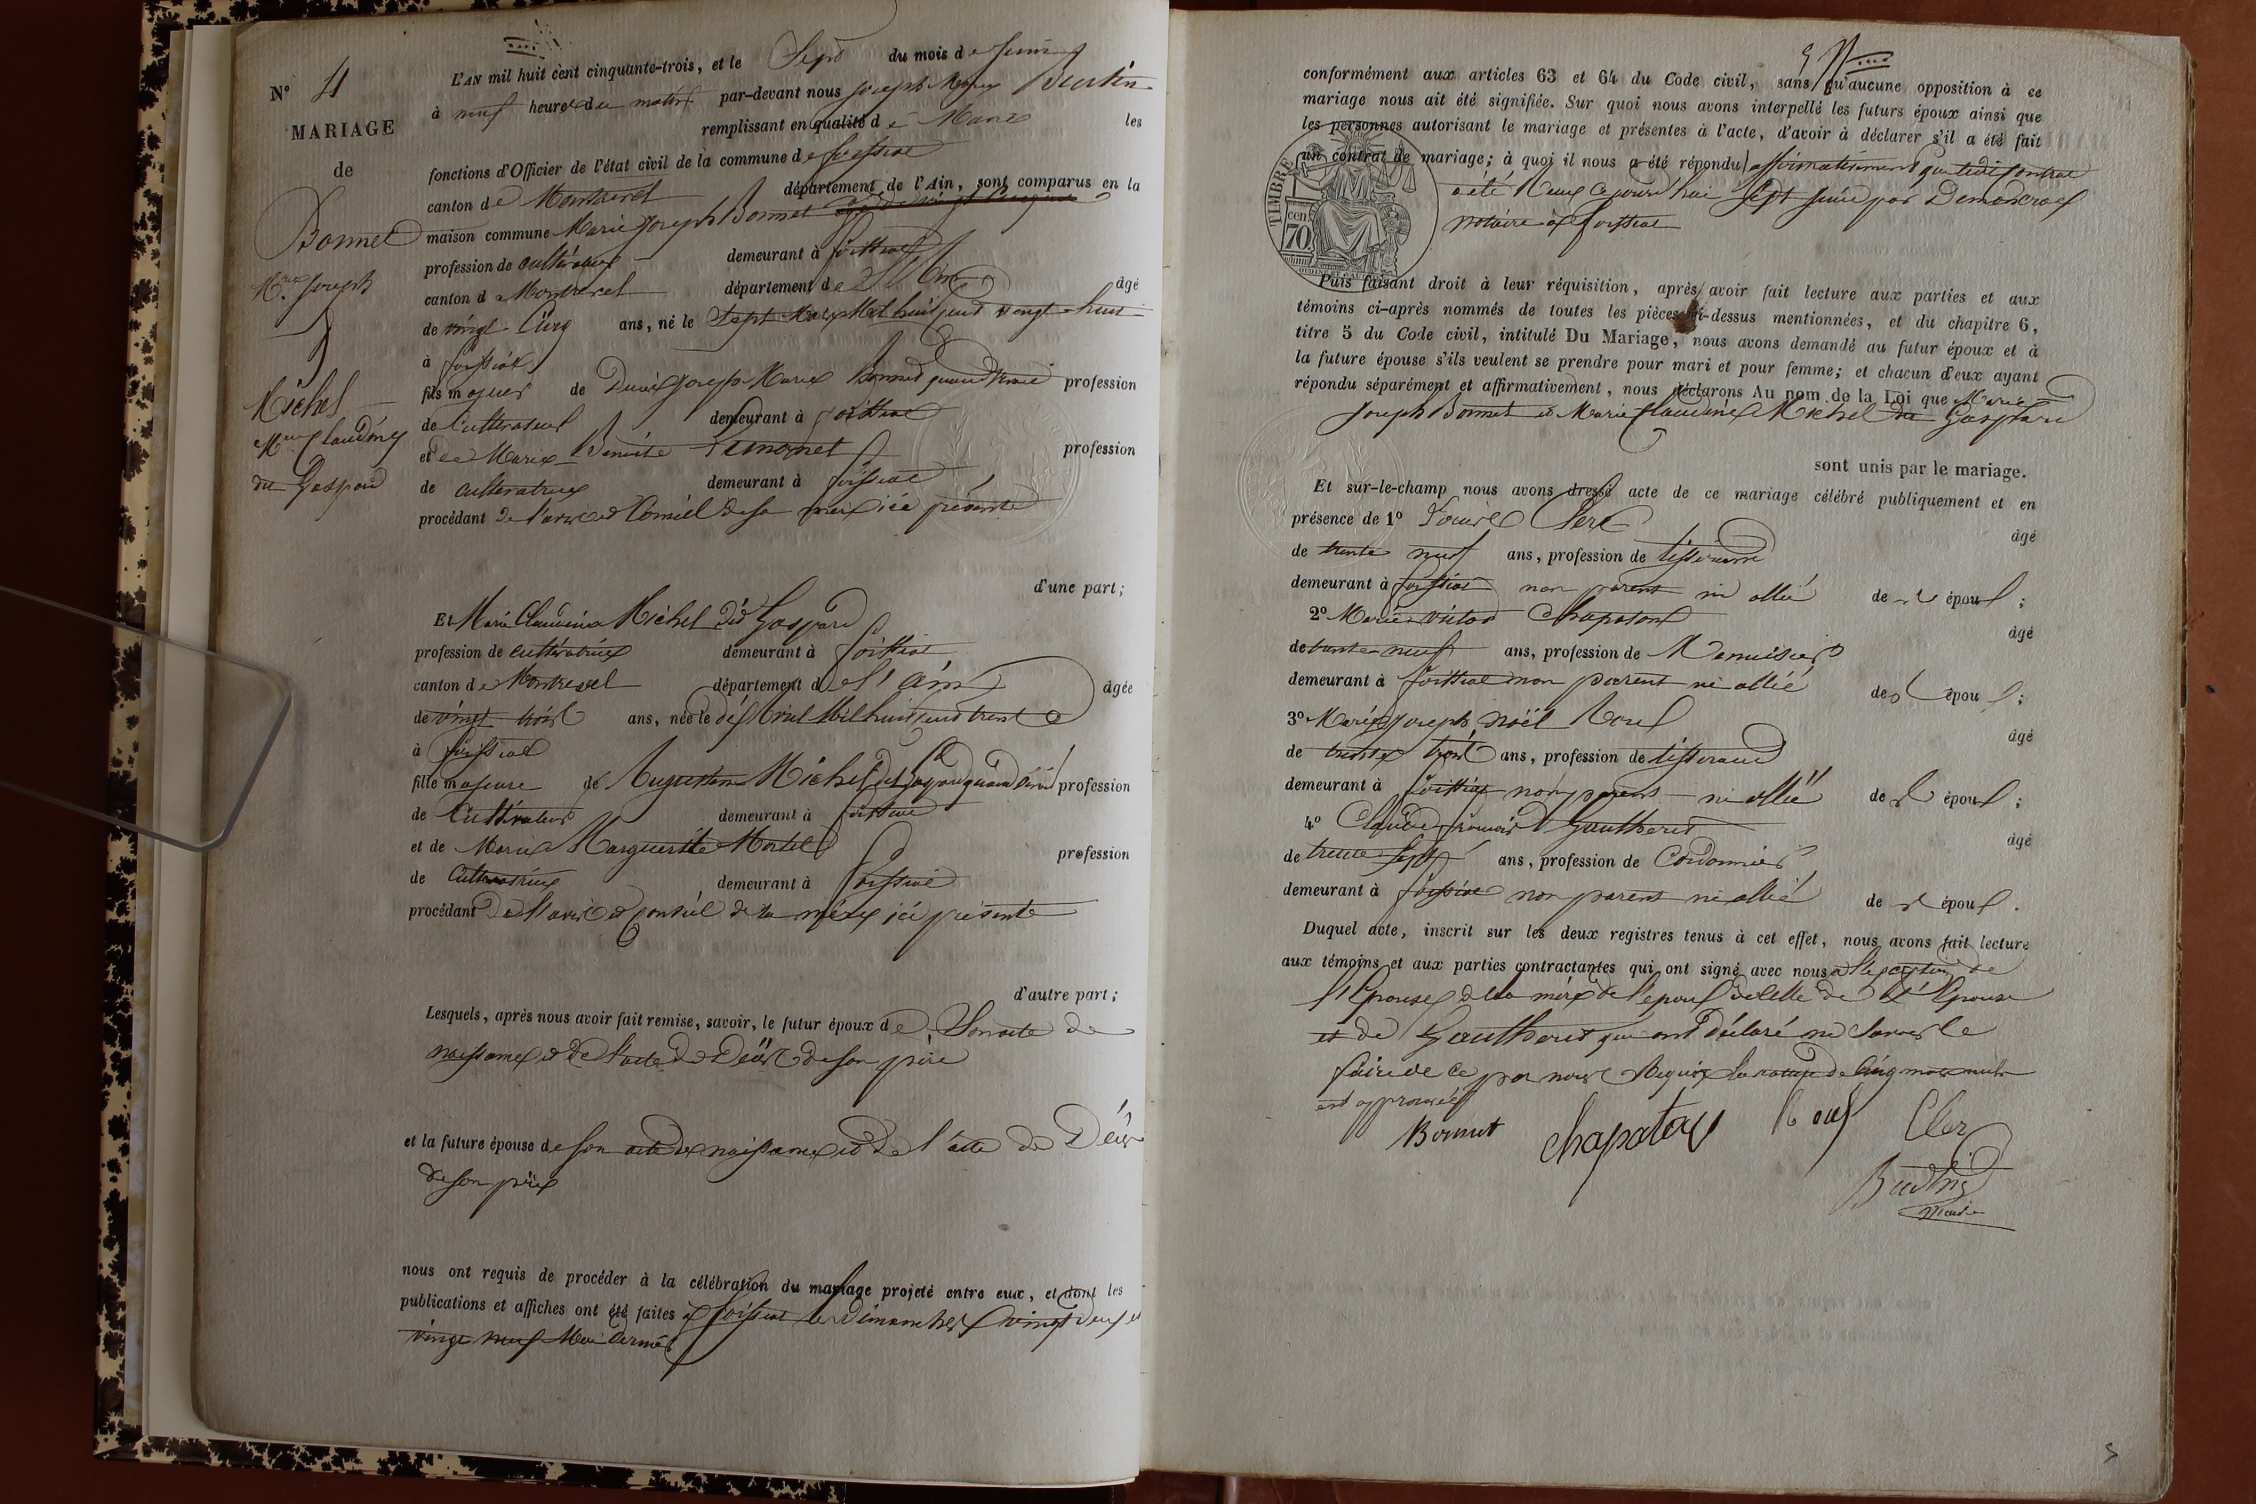 N° 4
MARIAGE
de
Bonnet
Mie Joseph
Michel
Mie Claudine
dit Gaspard
L'AN mil huit cent cinquante-trois, et le Sept du mois de Juin
à neuf heures du matin par-devant nous Joseph Marie
remplissant en qualité de Maire les
fonctions d'Officier de l'état civil de la commune de foissiat
canton de Montrevel département de l'Ain, sont comparus en la
maison commune Marie Joseph Bonnet
profession de cultivateur demeurant à foissiat
canton de Montrevel département de l'Ain âgé
de vingt Cinq ans, né le Sept Mars Mil huit cent vingt huit
à foissiat
fils majeur de Denis Joseph Marie Bonnet quand vivait profession
de Cultivateur demeurant à foissiat
et de Marie Benoite profession
de cultivatrice demeurant à foissiat
procédant de l'avis et Conseil de sa mère ici présente
d'une part;
Et Marie Claudine Michel dit Gaspard
profession de cultivatrice demeurant à foissiat
canton de Montrevel département de l'Ain âgée
de vingt trois ans, née le dix Avril Mil huit cent trente
à foissiat
fille majeure de Augustin Michel dit Gaspard quand vivait profession
de Cultivateur demeurant à foissiat
et de Marie Marguerite Mortel profession
de Cultivatrice demeurant à foissiat
procédant de l'avis et conseil de sa mère ici présente
d'autre part;
Lesquels, après nous avoir fait remise, savoir, le futur époux de Son acte de
naissance et de l'acte de Décès de son père
et la future épouse de son acte de naissance et de l'acte de Décès
de son père
nous ont requis de procéder à la célébration du mariage projeté entre eux, et dont les
publications et affiches ont été faites à foissiat les Dimanches vingt deux et
vingt neuf Mai dernier
conformément aux articles 63 et 64 du Code civil, sans qu'aucune opposition à ce
mariage nous ait été signifiée. Sur quoi nous avons interpellé les futurs époux ainsi que
les personnes autorisant le mariage et présentes à l'acte, d'avoir à déclarer s'il a été fait
un contrat de mariage; à quoi il nous a été répondu affirmativement que ledit Contrat
a été Reçu Ce jourd'hui Sept juin par
notaire à foissiat
TIMBRE
cen
70
Puis faisant droit à leur réquisition, après avoir fait lecture aux parties et aux
témoins ci-après nommés de toutes les pièces ci-dessus mentionnées, et du chapitre 6,
titre 5 du Code civil, intitulé Du Mariage, nous avons demandé au futur époux et à
la future épouse s'ils veulent se prendre pour mari et pour femme; et chacun d'eux ayant
répondu séparément et affirmativement, nous déclarons Au nom de la Loi que Marie
Joseph Bonnet et Marie Claudine Michel dit Gaspard
sont unis par le mariage.
Et sur-le-champ nous avons dressé acte de ce mariage célébré publiquement et en
présence de 1° Louis Clerc âgé
de trente neuf ans, profession de tisserand
demeurant à foissiat non parent ni allié de l'époux;
2° Marie victor Chapaton âgé
de trente neuf ans, profession de Menuisier
demeurant à foissiat non parent ni allié de l'époux;
3° Marie Joseph noël Borel âgé
de trente trois ans, profession de tisserand
demeurant à foissiat non parent ni allié de l'époux;
4° Claude françois Gautheret âgé
de trente Sept ans, profession de Cordonnier
demeurant à foissiat non parent ni allié de l'époux.
Duquel acte, inscrit sur les deux registres tenus à cet effet, nous avons fait lecture
aux témoins et aux parties contractantes qui ont signé avec nous à l'exception de
l'Epouse de la mère de l'epoux de Celle de l'Epouse
et de Gautheret qui ont déclaré ne Savoir le
faire de Ce par nous Requis la rature de Cinq mots nuls
est approuvée
Bonnet Chapaton Clerc
Maire